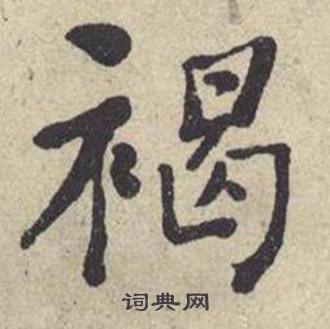 褐
词典网